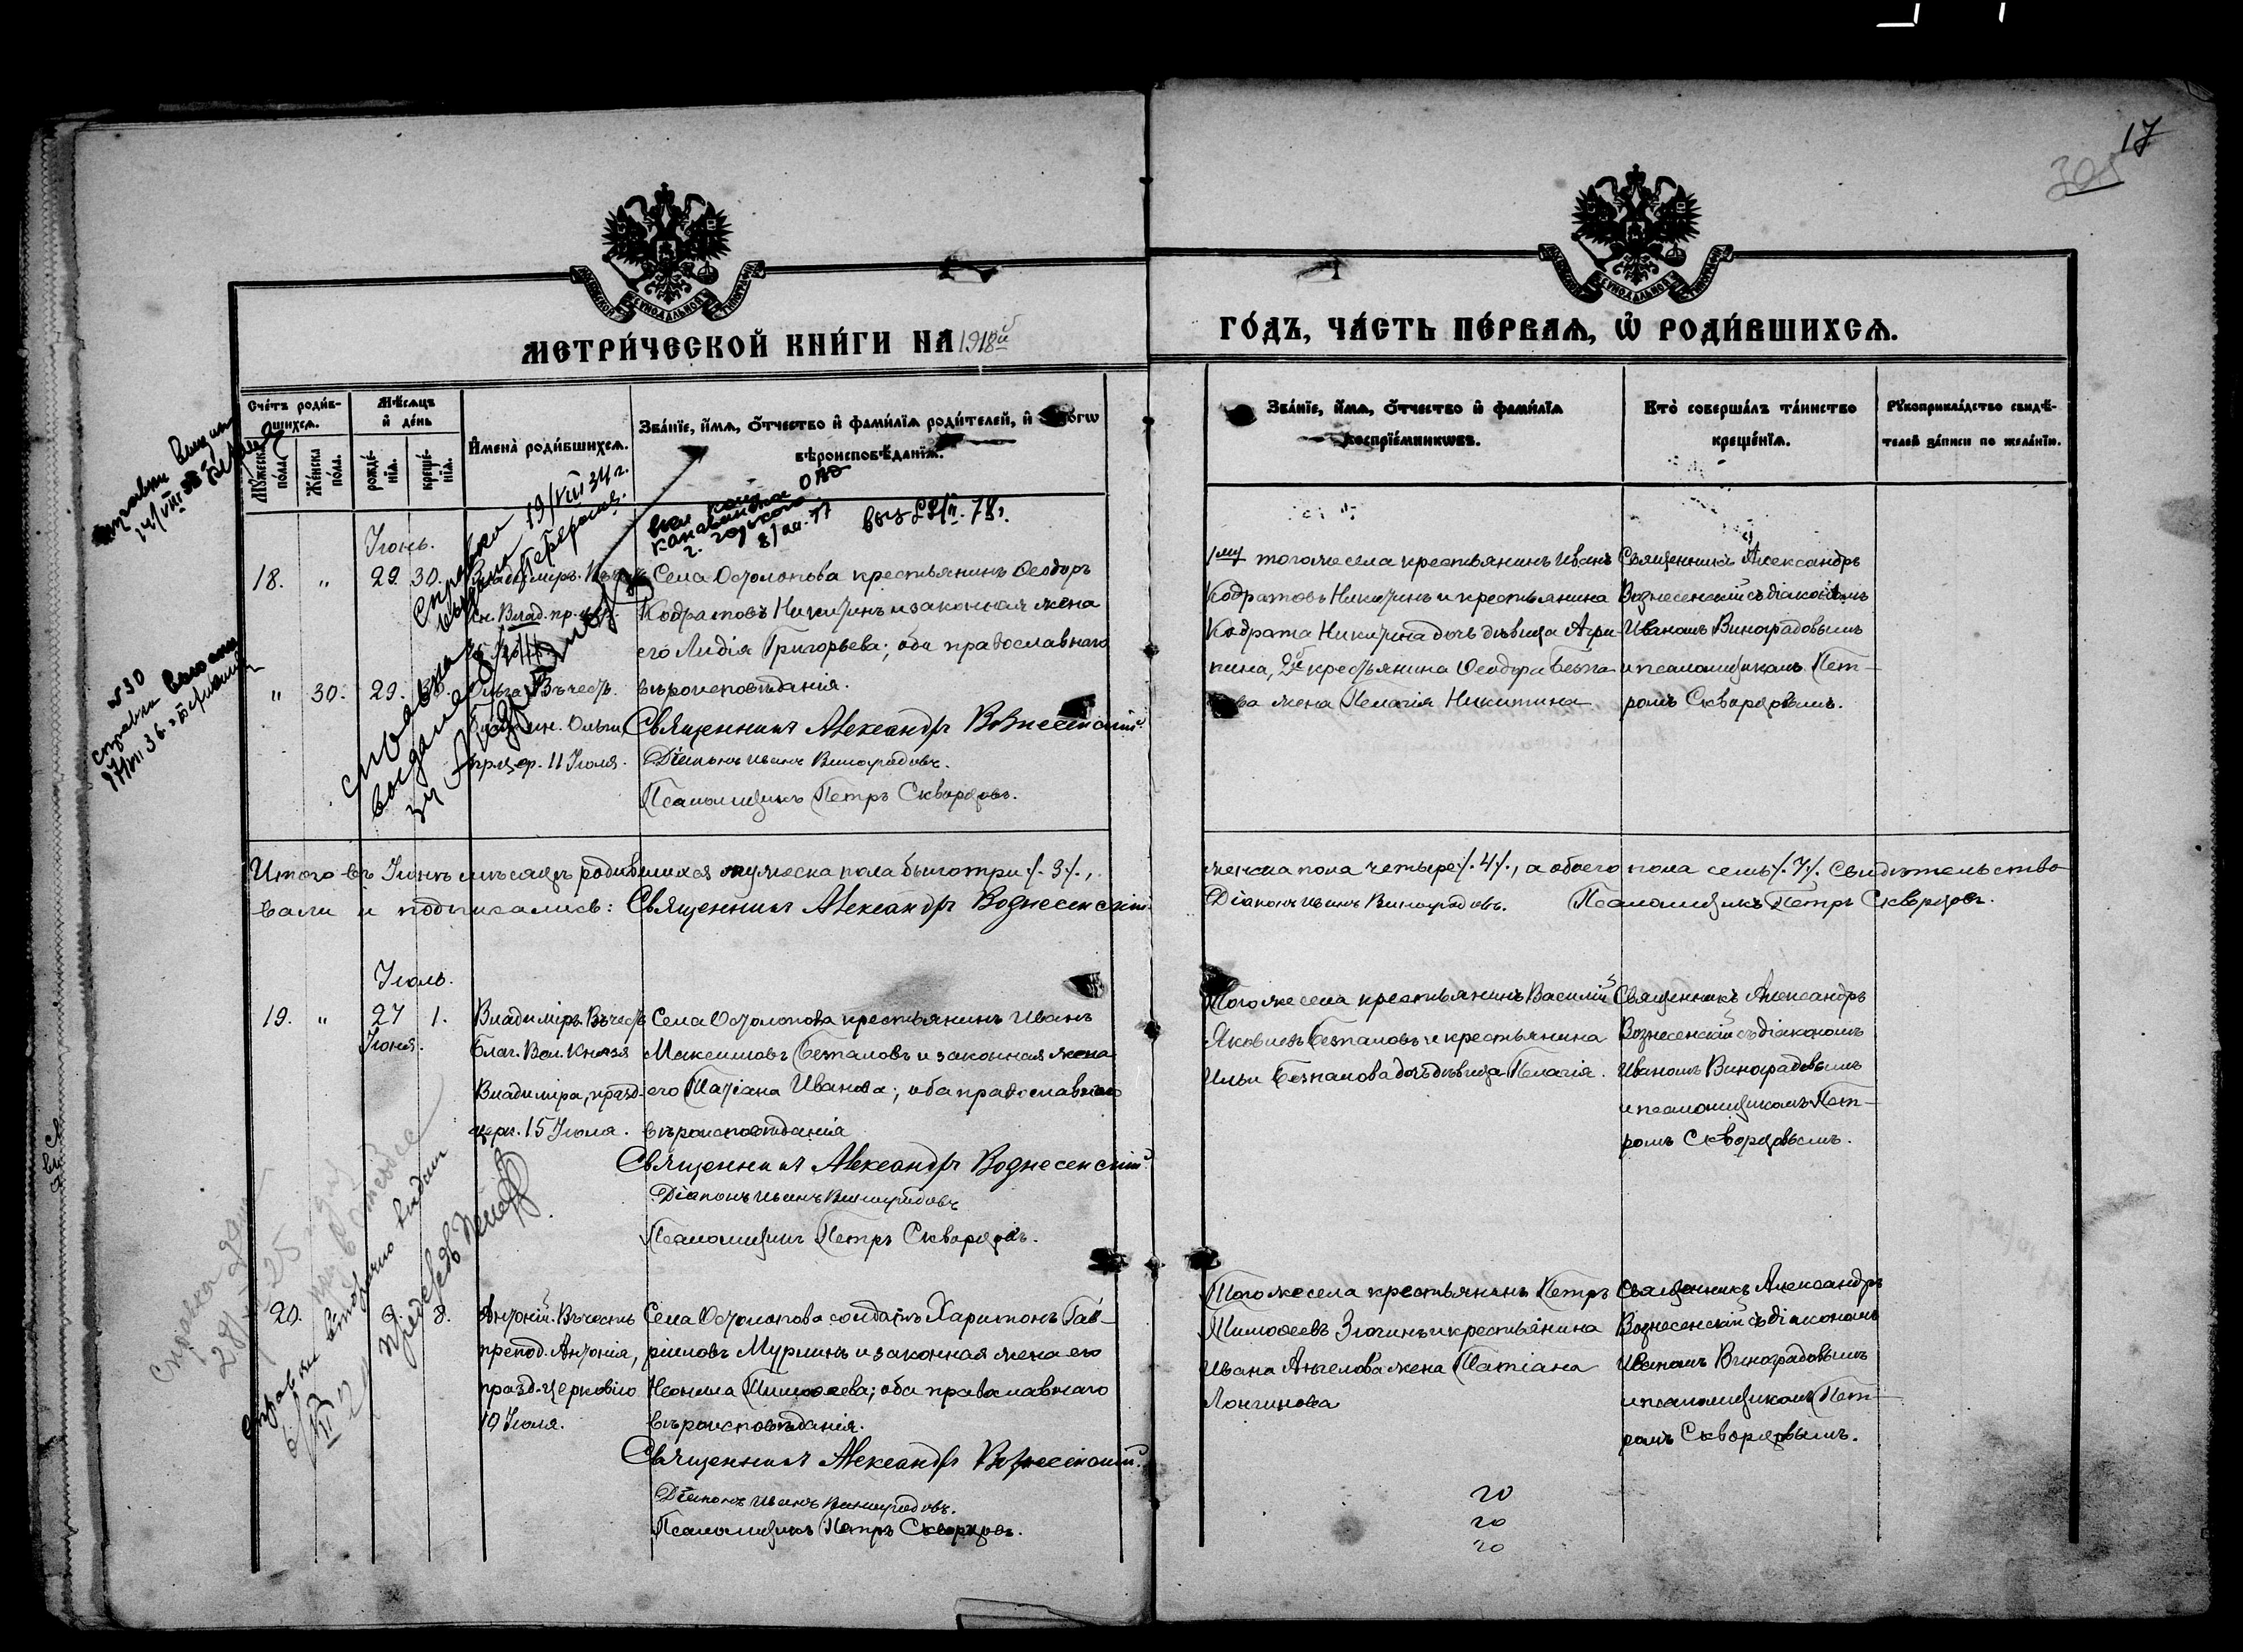 17
305
МЕТРИ́ЧЕСКОЙ КНИ́ГИ НА 1918й
ГО́ДЪ, ЧА́СТЬ ПЕ́РВАѦ, Ѡ҆ РОДИ́ВШИХСѦ.
Сче́тъ роди́вшихсѧ.
Мꙋ́жеска по́ла.
Же́нска по́ла.
Мѣ́сѧцъ и҆ де́нь
рожде́нїѧ.
креще́нїѧ.
И҆мена̀ роди́вшихсѧ.
Зва́нїе, и҆́мѧ, ѻ҆́тчество и҆ фами́лїѧ роди́телей, и҆
вѣроисповѣ́данїѧ.
Зва́нїе, и҆́мѧ, ѻ҆́тчество и҆ фами́лїѧ
воспрїе́мникѡвъ.
Кто̀ соверша́лъ та́инство
креще́нїѧ.
Рꙋкоприкла́дство свидѣ́телей за́писи по жела́нїю.
Іюнь.
18. " 29. 30.
Села Остолопова крестьянинъ Ѳеодоръ
Кодратовъ Никитинъ и законная жена
его Лидія Григорьева; оба православнаго
вѣроисповѣданія.
" 30. 29. 30. Ольга. Въ честь
Ольги,
11 Іюля.
Священникъ Александръ Вознесенскій
Діаконъ Иванъ Виноградовъ.
Псаломщикъ Петръ Скворцовъ.
того же села крестьянинъ Иванъ
Кодратовъ Никитинъ и крестьянина
Кодрата Никитина дочь дѣвица Агри-
пина, 2й крестьянина Ѳеодора
жена Пелагія Никитина
Священникъ Александръ
Вознесенскій съ діакономъ
Иваномъ Виноградовымъ
и псаломщикомъ Пет-
ромъ Скворцовымъ.
Итого въ Іюнѣ мѣсяцѣ родившихся мужеска пола было три /.3/.,
женска пола четыре /.4/., а обоего пола семь /.7/. Свидѣтельство-
вали и подписались: Священникъ Александръ Вознесенскій
Діаконъ Иванъ Виноградовъ. Псаломщикъ Петръ Скворцовъ.
Іюль.
19. " 27 Іюня. 1.
Владиміръ. Въ честь
Благ. Вел. Князя
Владиміра, празд.
церк. 15 Іюля.
Села Остолопова крестьянинъ Иванъ
Максимовъ Безпаловъ и законная жена
его Татіана Иванова; оба православнаго
вѣроисповѣданія
Священникъ Александръ Вознесенскій
Діаконъ Иванъ Виноградовъ
Псаломщикъ Петръ Скворцовъ.
Того же села крестьянинъ Василій
Яковлевъ Безпаловъ и крестьянина
Ильи Безпалова дочь дѣвица Пелагія.
Священникъ Александръ
Вознесенскій съ діакономъ
Иваномъ Виноградовымъ
и псаломщикомъ Пет-
ромъ Скворцовымъ.
20. 2. 3.
Антоній. Въ честь
препод. Антонія,
празд. церковію
10 Іюля.
Села Остолопова солдатъ Харитонъ Гав-
рииловъ Мурзинъ и законная жена его
Неонила Тимоѳеева; оба православнаго
вѣроисповѣданія.
Священникъ Александръ Вознесенскій
Діаконъ Иванъ Виноградовъ.
Псаломщикъ Петръ Скворцовъ.
Того же села крестьянинъ Петръ
Тимоѳеевъ Злогинъ и крестьянина
Ивана Ангелова жена Татіана
Лонгинова
Священникъ Александръ
Вознесенскій съ діакономъ
Иваномъ Виноградовымъ
и псаломщикомъ Пет-
ромъ Скворцовымъ.
20
20
20